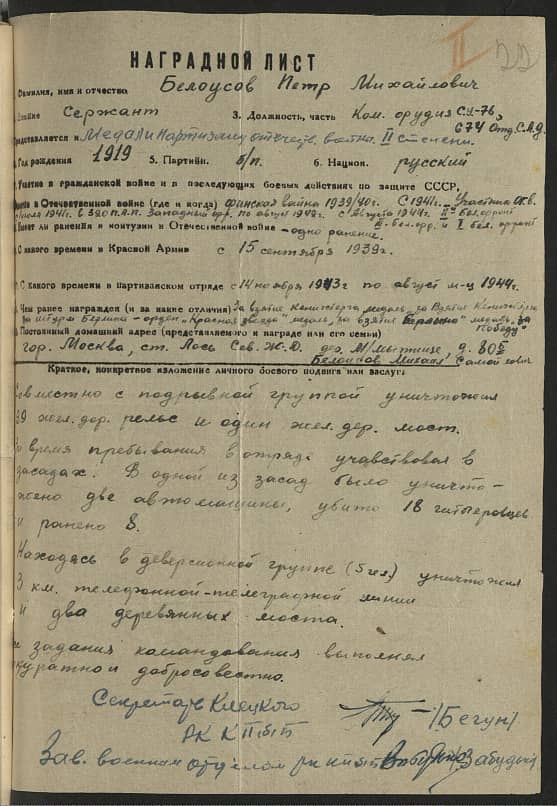 II 22
НАГРАДНОЙ ЛИСТ
Фамилия, имя и отчество Белоусов Петр Михайлович
Звание Сержант 3. Должность, часть Ком. орудия СУ-76,
674 Отд. С.А.Д.
Представляется к Медали Партизану отечеств. войны II степени.
Год рождения 1919 5. Партийн. б/п. 6. Национ. русский
Участие в гражданской войне и в последующих боевых действиях по защите СССР,
в Отечественной войне (где и когда) Финская война 1939/40г. С 1941г. – Участник От.в.
1941г. в 390 п.А.П. Западный фр. по август 1942г. с Августа 1944г. II Бел.фронт
Имеет ли ранения и контузии в Отечественной войне – одно ранение. III-бел.фр. и I бел. фронт
С какого времени в Красной Армии с 15 сентября 1939г.
С какого времени в партизанском отряде с 14 ноября 1943г по август м-ц 1944г.
Чем ранее награжден (и за какие отличия) За взятие Кенигсберга медаль "за Взятие Кенигсберга
за штурм Берлина – орден "Красная звезда" медаль "за взятие Берлина" медаль "за
Победу"
Постоянный домашний адрес (представляемого к награде или его семьи)
гор. Москва, ст. Лось Сев. Ж.Д. д. 80
Белоусов Михаил Самойлович
Краткое, конкретное изложение личного боевого подвига или заслуг:
Совместно с подрывной группой уничтожил
39 жел. дор. рельс и один жел. дор. мост.
Во время пребывания в отряде учавствовал в
засадах. В одной из засад было уничто-
жено две автомашины, убито 18 гитлеровцев
и ранено 8.
Находясь в деверсионной группе (5 чел.) уничтожил
3 км. телефонной-телеграфной линии
и два деревянных моста.
задания командования выполнял
акуратно и добросовестно.
Секретарь Клецкого
РК КП(б)Б /Бегун/
Зав. военным отделом РК КП(б)Б /Забудько/